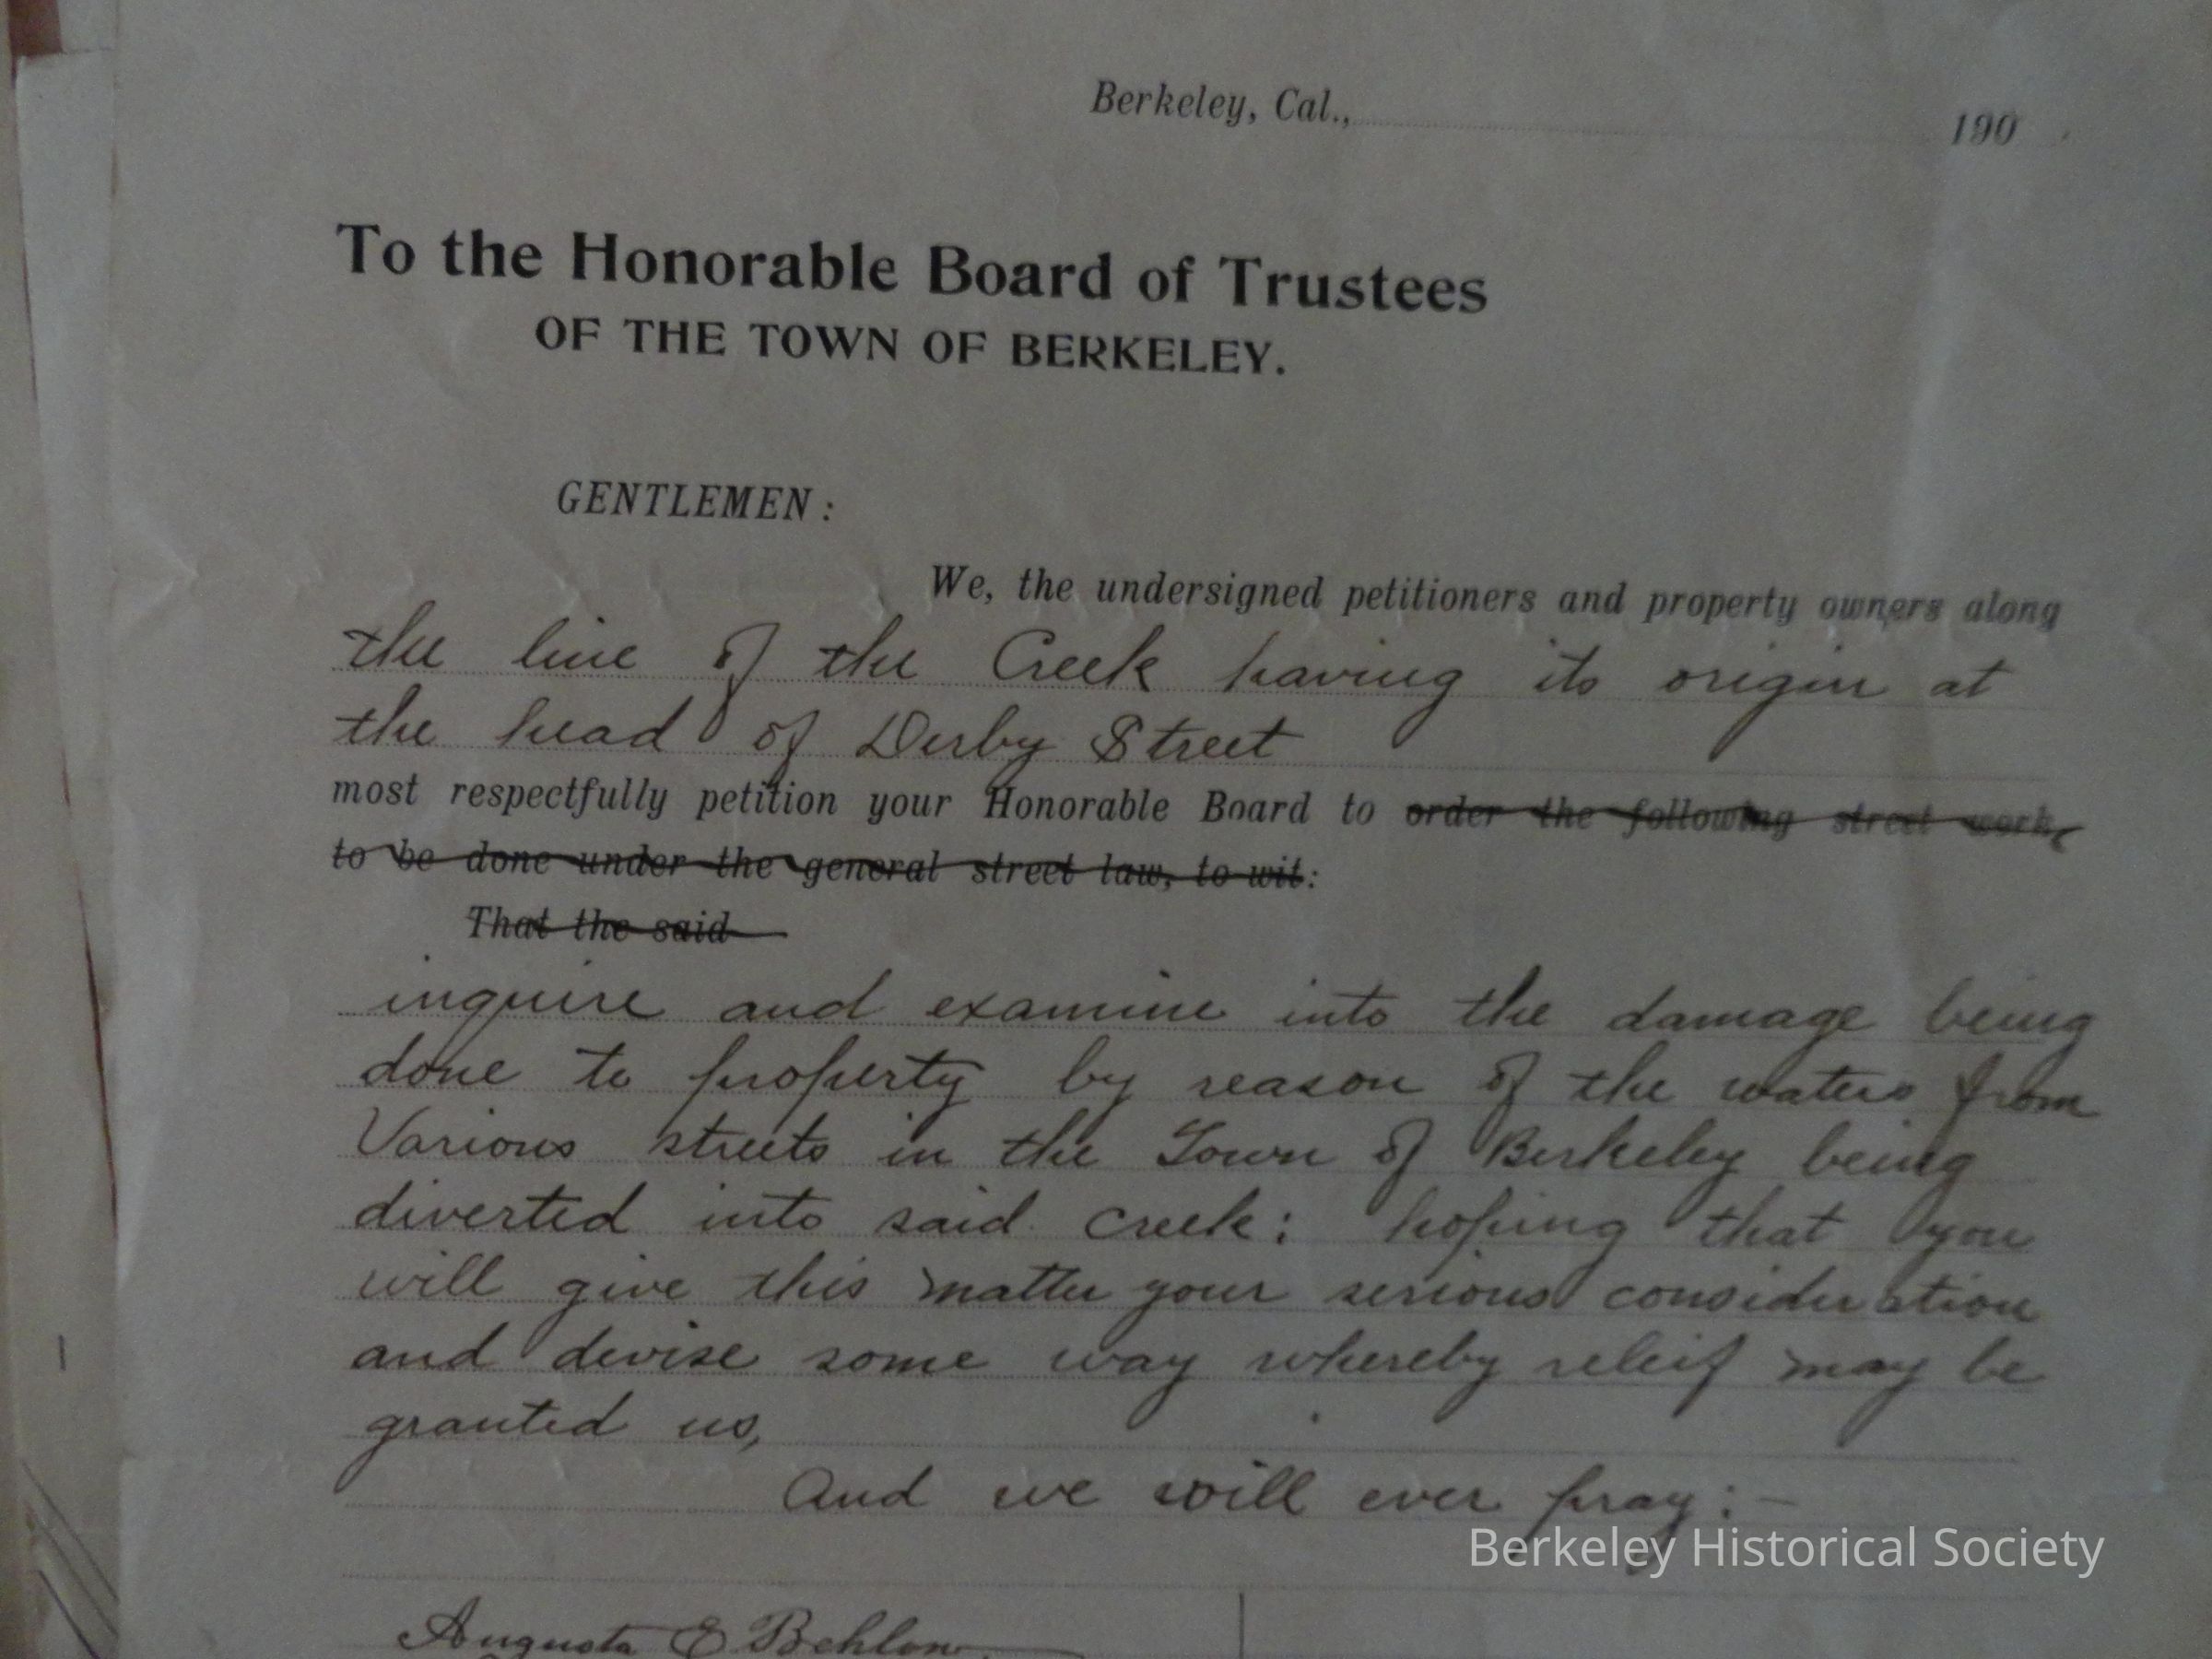 Berkeley, Cal., 190
To the Honorable Board of Trustees
OF THE TOWN OF BERKELEY.
GENTLEMEN:
We, the undersigned petitioners and property owners along
the line of the Creek having its origin at
the head of Derby Street
most respectfully petition your Honorable Board to order the following street work,
to be done under the general street law, to wit:
That the said
inquire and examine into the damage being
done to property by reason of the waters from
Various streets in the Town of Berkeley being
diverted into said creek; hoping that you
will give this matter your serious consideration
and devise some way whereby releif may be
granted us,
And we will ever pray:-
Berkeley Historical Society
Augusta E Behlow